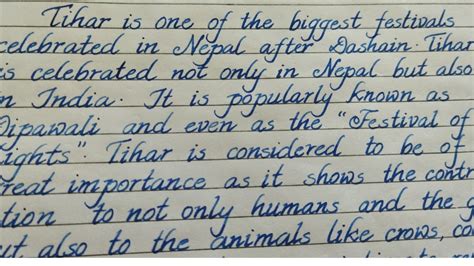 Tihar is one of the biggest festivals
celebrated in Nepal after Dashain. Tihar
is celebrated not only in Nepal but also
in India. It is popularly known as
Dipawali and even as the "Festival of
Lights". Tihar is considered to be of
great importance as it shows the contr
tion to not only humans and the g
but also to the animals like crows, co